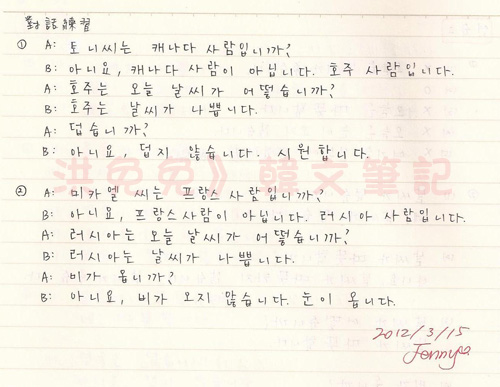 對話練習
① A: 토니씨는 캐나다 사람입니까?
B: 아니요, 캐나다 사람이 아닙니다. 호주 사람입니다.
A: 호주는 오늘 날씨가 어떻습니까?
B: 호주는 날씨가 나쁩니다.
A: 덥습니까?
B: 아니요, 덥지 않습니다. 시원합니다.
洪兔兔》韓文筆記
② A: 미카엘 씨는 프랑스 사람입니까?
B: 아니요, 프랑스 사람이 아닙니다. 러시아 사람입니다.
A: 러시아는 오늘 날씨가 어떻습니까?
B: 러시아는 날씨가 나쁩니다.
A: 비가 옵니까?
B: 아니요, 비가 오지 않습니다. 눈이 옵니다.
2012/3/15
Jenny